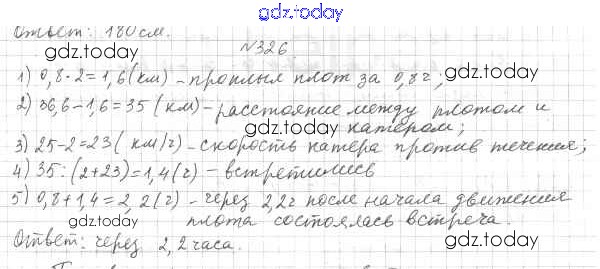 gdz.today
Ответ: 180 см.
gdz.today
№326
gdz.today
1) 0,8·2=1,6(км) - проплыл плот за 0,8ч;
gdz.today
2) 36,6-1,6=35 (км) - расстояние между плотом и
gdz.today
катером;
3) 25-2=23( км/ч) - скорость катера против течения;
gdz.today
4) 35:(2+23)=1,4(ч) - встретились
gdz.today
5) 0,8+1,4=2,2(ч) - через 2,2ч после начала движения
gdz.today
плота состоялась встреча.
Ответ: через 2,2 часа.
gdz.today
gdz.today